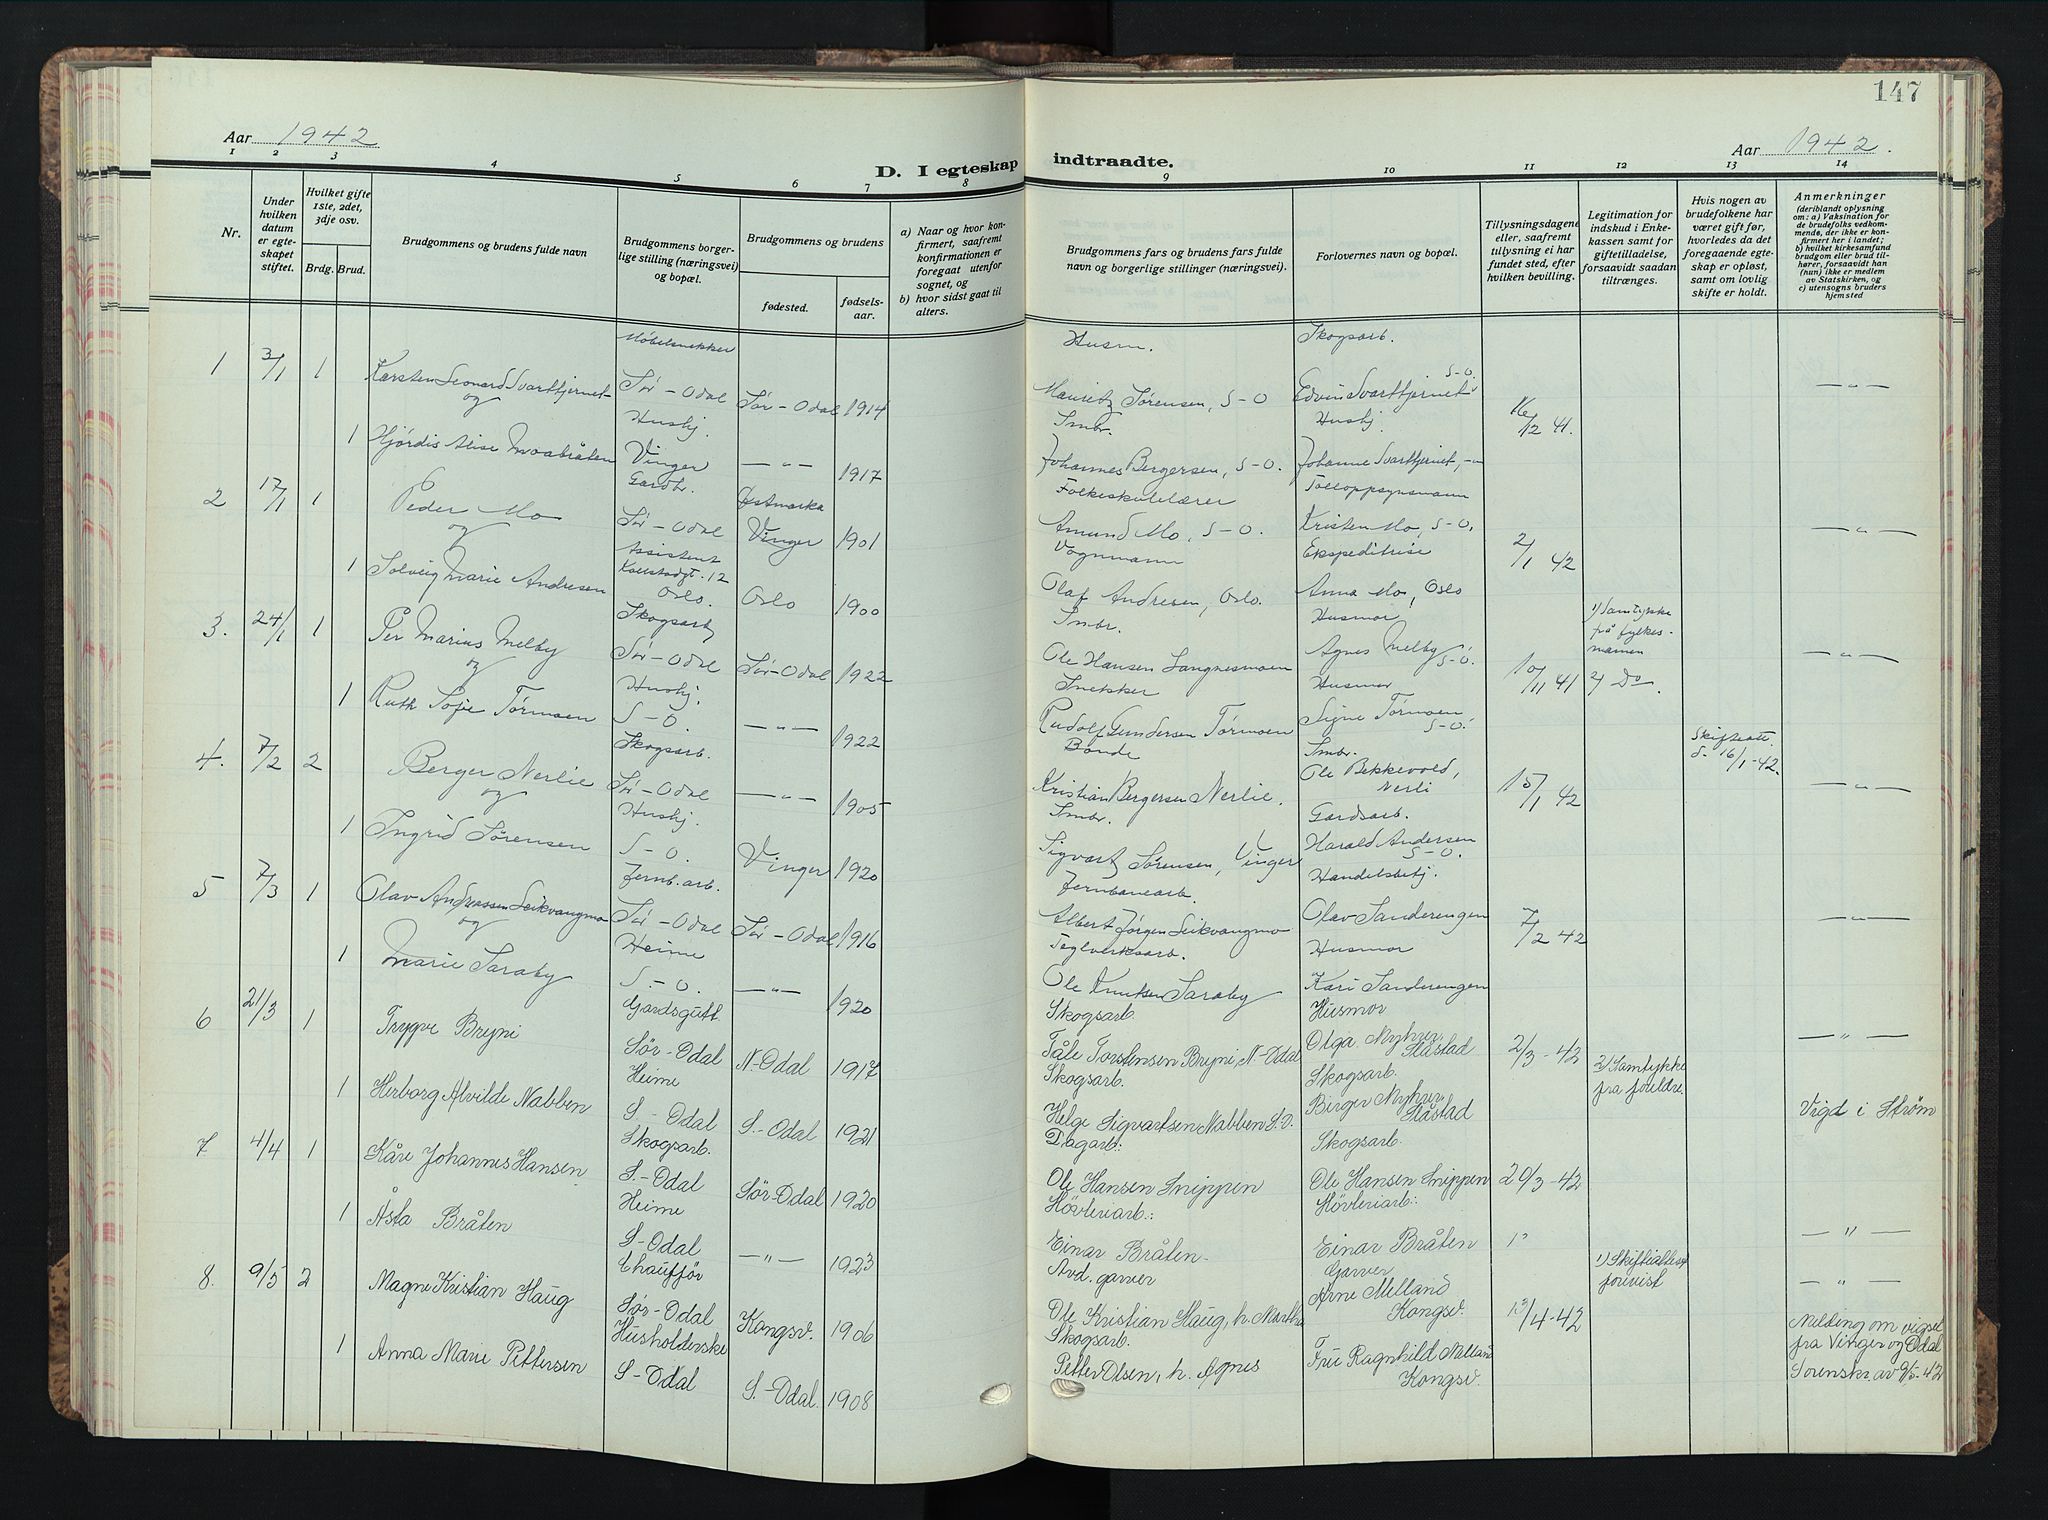 147
Aar 1942
Aar 1942.
D. I egteskap indtraadte.
1 2 3 4 5 6 7 8 9 10 11 12 13 14
Nr.
Under hvilken datum er egteskapet stiftet.
Hvilket gifte 1ste, 2det, 3dje osv.
Brdg. Brud.
Brudgommens og brudens fulde navn
Brudgommens borgerlige stilling (næringsvei) og bopæl.
Brudgommens og brudens
fødested.
fødselsaar.
a) Naar og hvor konfirmert, saafremt konfirmationen er foregaaet utenfor sognet, og
b) hvor sidst gaat til alters.
Brudgommens fars og brudens fars fulde navn og borgerlige stillinger (næringsvei).
Forlovernes navn og bopæl.
Tillysningsdagene eller, saafremt tillysning ei har fundet sted, efter hvilken bevilling.
Legitimation for indskud i Enkekassen samt for giftetilladelse, forsaavidt saadan tiltrænges.
Hvis nogen av brudefolkene har været gift før, hvorledes da det foregaaende egteskap er opløst, samt om lovlig skifte er holdt.
Anmerkninger
(deriblandt oplysning om: a) Vaksination for de brudefolks vedkommende, der ikke er konfirmert her i landet; b) hvilket kirkesamfund brudgom eller brud tilhører, forsaavidt han (hun) ikke er medlem av Statskirken, og c) utensogns bruders hjemsted
Møbelsnekker Husm. Skogsarb.
1 3/1 1 Karsten Leonard Svarttjernet Sør-Odal Sør-Odal 1914 Mauritz Sørensen, S-O Edvin Svarttjernet S-O. 16/12 41. — " —
og Husbj. Smbr. Husbj.
1 Hjørdis Alise Moabråten Vinger — " — 1917 Johannes Bergersen, S-O. Johanne Svarttjernet, - "
Gardbr. Østmarka Folkeskulelærer Tolloppsynsmann
2 17/1 1 Peder Mo Sør-Odal Vinger 1901 Amund Mo, S-O. Kristen Mo, S-O. 2/1 42 — " —
og Assistent Vognmann Ekspeditrise
1 Solveig Marie Andresen 12 Oslo. Oslo 1900 Olaf Andresen, Oslo. Anna Mo, Oslo
Skogsarb. Smbr. Husmor
3. 24/1 1 Per Marius Melby Sør-Odal Sør-Odal 1922 Ole Hansen Langnesmoen Agnes Melby S-O. 10/11 41 1) Samtykke frå fylkesmannen — " —
og Husbj. Snekker Husmor 2) Do.
1 Ruth Sofie Tørmoen S-O. — " — 1922 Rudolf Gundersen Tørmoen Signe Tørmoen S-O.
Skogsarb. Bonde Smbr.
4. 7/2 2 Berger Nerlie Sør-Odal — " — 1905 Kristian Bergersen Nerlie. Ole Bekkevold, Nerli 15/1 42 Skifteatt. d. 16/1-42. — " —
og Husbj. Smbr. Gardsarb.
1 Ingrid Sørensen S-O. Vinger 1920 Sigvart Sørensen, Vinger Harald Andersen S-O.
Jernb.arb. Jernbanearb. Handelsbetj.
5 7/3 1 Olav Andreassen Leikvangmo Sør-Odal Sør-Odal 1916 Albert Jørgen Leikvangmo Olav Sanderengen 7/2 42 — " —
og Heime Teglverksarb. Husmor
1 Marie Saraby S.-O. — " — 1920 Ole Knutsen Saraby Kari Sanderengen
Gardsgutt Skogsarb. Husmor
6 21/3 1 Trygve Bryni Sør-Odal N-Odal 1917 Påle Torstensen Bryni, N-Odal Olga Myhrer Slåstad 2/3-42 — " —
Heime Skogsarb. Skogsarb. 2) Samtykke fra foreldre.
1 Herborg Alvilde Nabben S.-Odal S.-Odal 1921 Helge Sigvartsen Nabben S.O. Berger Myhrer Slåstad Vigd i Strøm
Skogsarb. Dagarb.: Skogsarb.
7 4/4 1 Kåre Johannes Hansen S.-Odal Sør-Odal 1920 Ole Hansen Snippen Ole Hansen Snippen 20/3-42
Heime Høvleriarb.: Høvleriarb.:
1 Åsta Bråten S-Odal — " — 1923 Einar Bråten Einar Bråten — " —
Chauffør Avd. garver Garver 1) Skifteattest forevist
8. 9/5 2 Magne Kristian Haug Sør-Odal Kongsv. 1906 Ole Kristian Haug, h. Martha Arne Melland Kongsv. 13/4-42 — " —
Husholderske Skogsarb.
1 Anna Marie Pettersen S-Odal S.-Odal. 1908 Petter Olsen, h. Agnes Fru Ragnhild Melland Kongsv.
Melding om vigsel fra Vinger og Odal Sorenskr. av 9/5-42